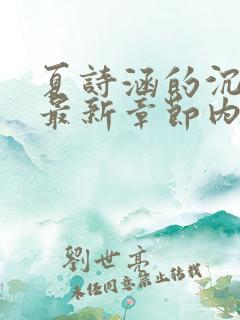 夏詩涵的沉
最新章節內
劉世亮
未經同意禁止轉載